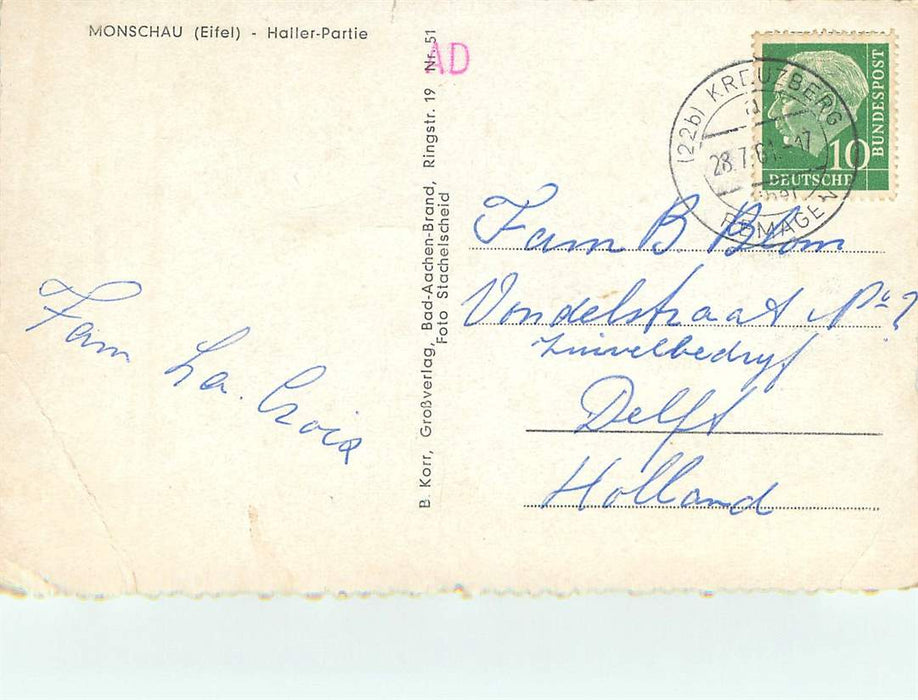 MONSCHAU (Eifel) - Haller-Partie
AD
B. Korr, Großverlag, Bad-Aachen-Brand, Ringstr. 19 Nr. 51
Foto Stachelscheid
(22b) KREUZBERG
a
28.7.61.-17
REMAGEN
BUNDESPOST
10
DEUTSCHE
Fam B Blom
Vondelstraat No
Zuivelbedryf
Delft
Holland
Fam La. Croix